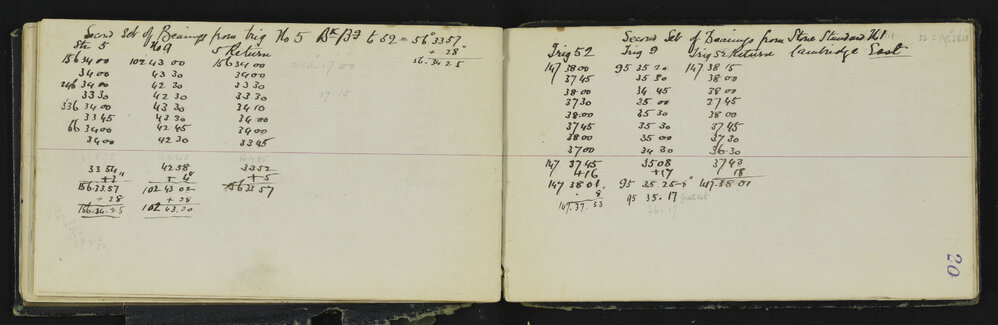 Second Set of Bearings from Trig No 5 to 52 = 56° 33 57
+ 28"
56.34.25
Stn 5 No 9 5 Return
156 34 00 102 43 00 156 34 00
34 00 43 30 34 00
246 34 00 42 30 33 30
33 30 42 30 33 30
336 34 00 43 30 34 10
33 45 43 30 34 00
66 34 00 42 45 34 00
34 00 42 30 33 45
33 54 42 58 33 52
+ 3" + 4" + 5
156 33 57 102 43 02 156 33 57
+ 28 + 28
156.34.25 102 43.30
Second Set of Bearings from Stone Standard No 1
Trig 52 Trig 9 Trig 52 Return Cambridge East
147 38 00 95 35 20 147 38 15
37 45 35 30 38 00
38 00 34 45 38 00
37 30 35 00 37 45
38 00 35 30 38 00
37 45 35 30 37 45
38 00 35 00 37 30
37 00 34 30 36 30
147 37 45 35 08 37 43
+16 +17 18
147 38 01 95 35 25 - 8" 147.38.01
- 8 95 35.17
147.37.53
20